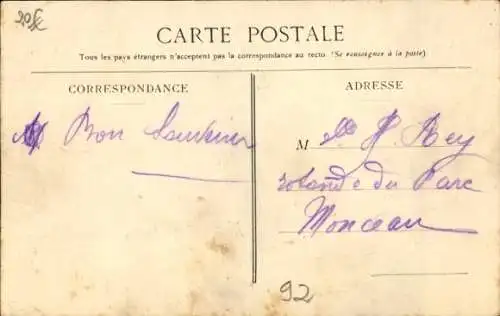 CARTE POSTALE
Tous les pays étrangers n'acceptent pas la correspondance au recto. (Se renseigner à la poste).
CORRESPONDANCE
ADRESSE
Bon Souvenir
M lle Rey
du Parc
Monceau
92